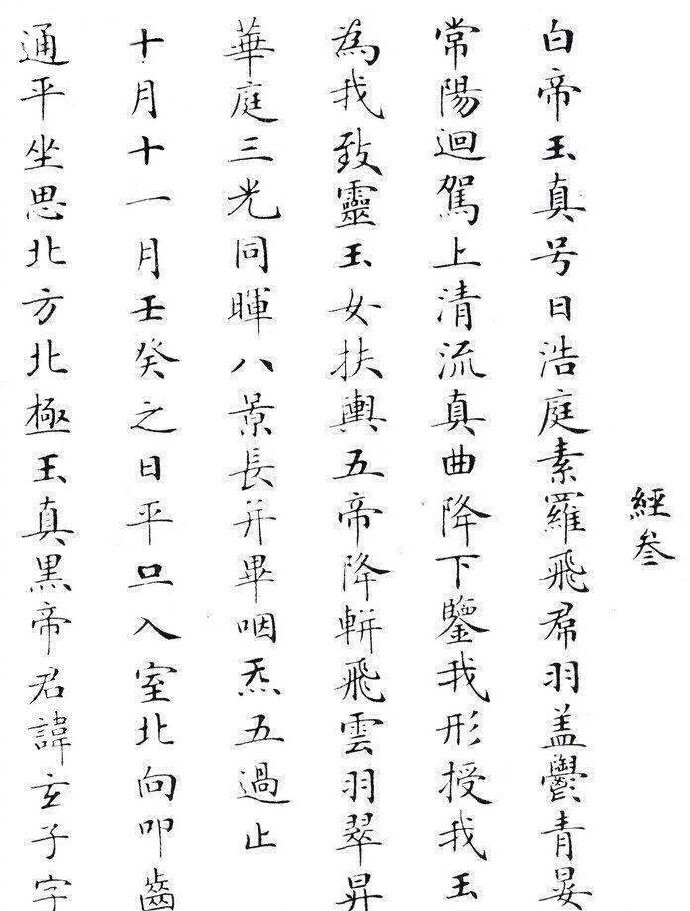 經叁
白帝玉真号曰浩庭素羅飛帬羽盖鬱青晏
常陽迴駕上清流真曲降下鑒我形授我玉
為我致靈玉女扶輿五帝降軿飛雲羽翠昇
華庭三光同暉八景長并畢咽炁五過止
十月十一月壬癸之日平旦入室北向叩齒
通平坐思北方北極玉真黑帝君諱玄子字